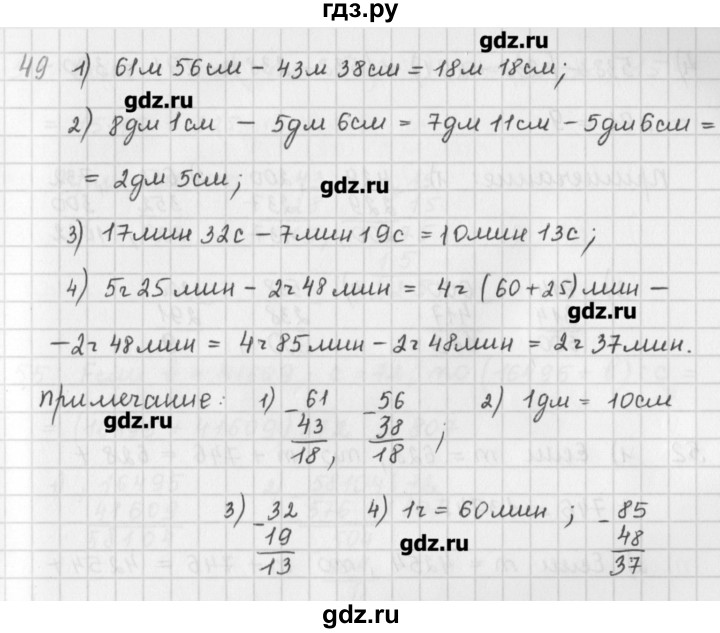 гдз.ру
49 1) 61м 56см − 43м 38см = 18м 18см;
gdz.ru
gdz.ru
2) 8дм 1см − 5дм 6см = 7дм 11см − 5дм 6см =
= 2дм 5см;
gdz.ru
3) 17мин 32с − 7мин 19с = 10мин 13с;
4) 5ч 25мин − 2ч 48мин = 4ч (60+25)мин −
gdz.ru
− 2ч 48мин = 4ч 85мин − 2ч 48мин = 2ч 37мин.
примечание: 1) − 61 − 56 2) 1дм = 10см
gdz.ru
43 38
18, 18 ;
3) − 32 4) 1ч = 60мин ; − 85
19 48
gdz.ru
13 37
gdz.ru